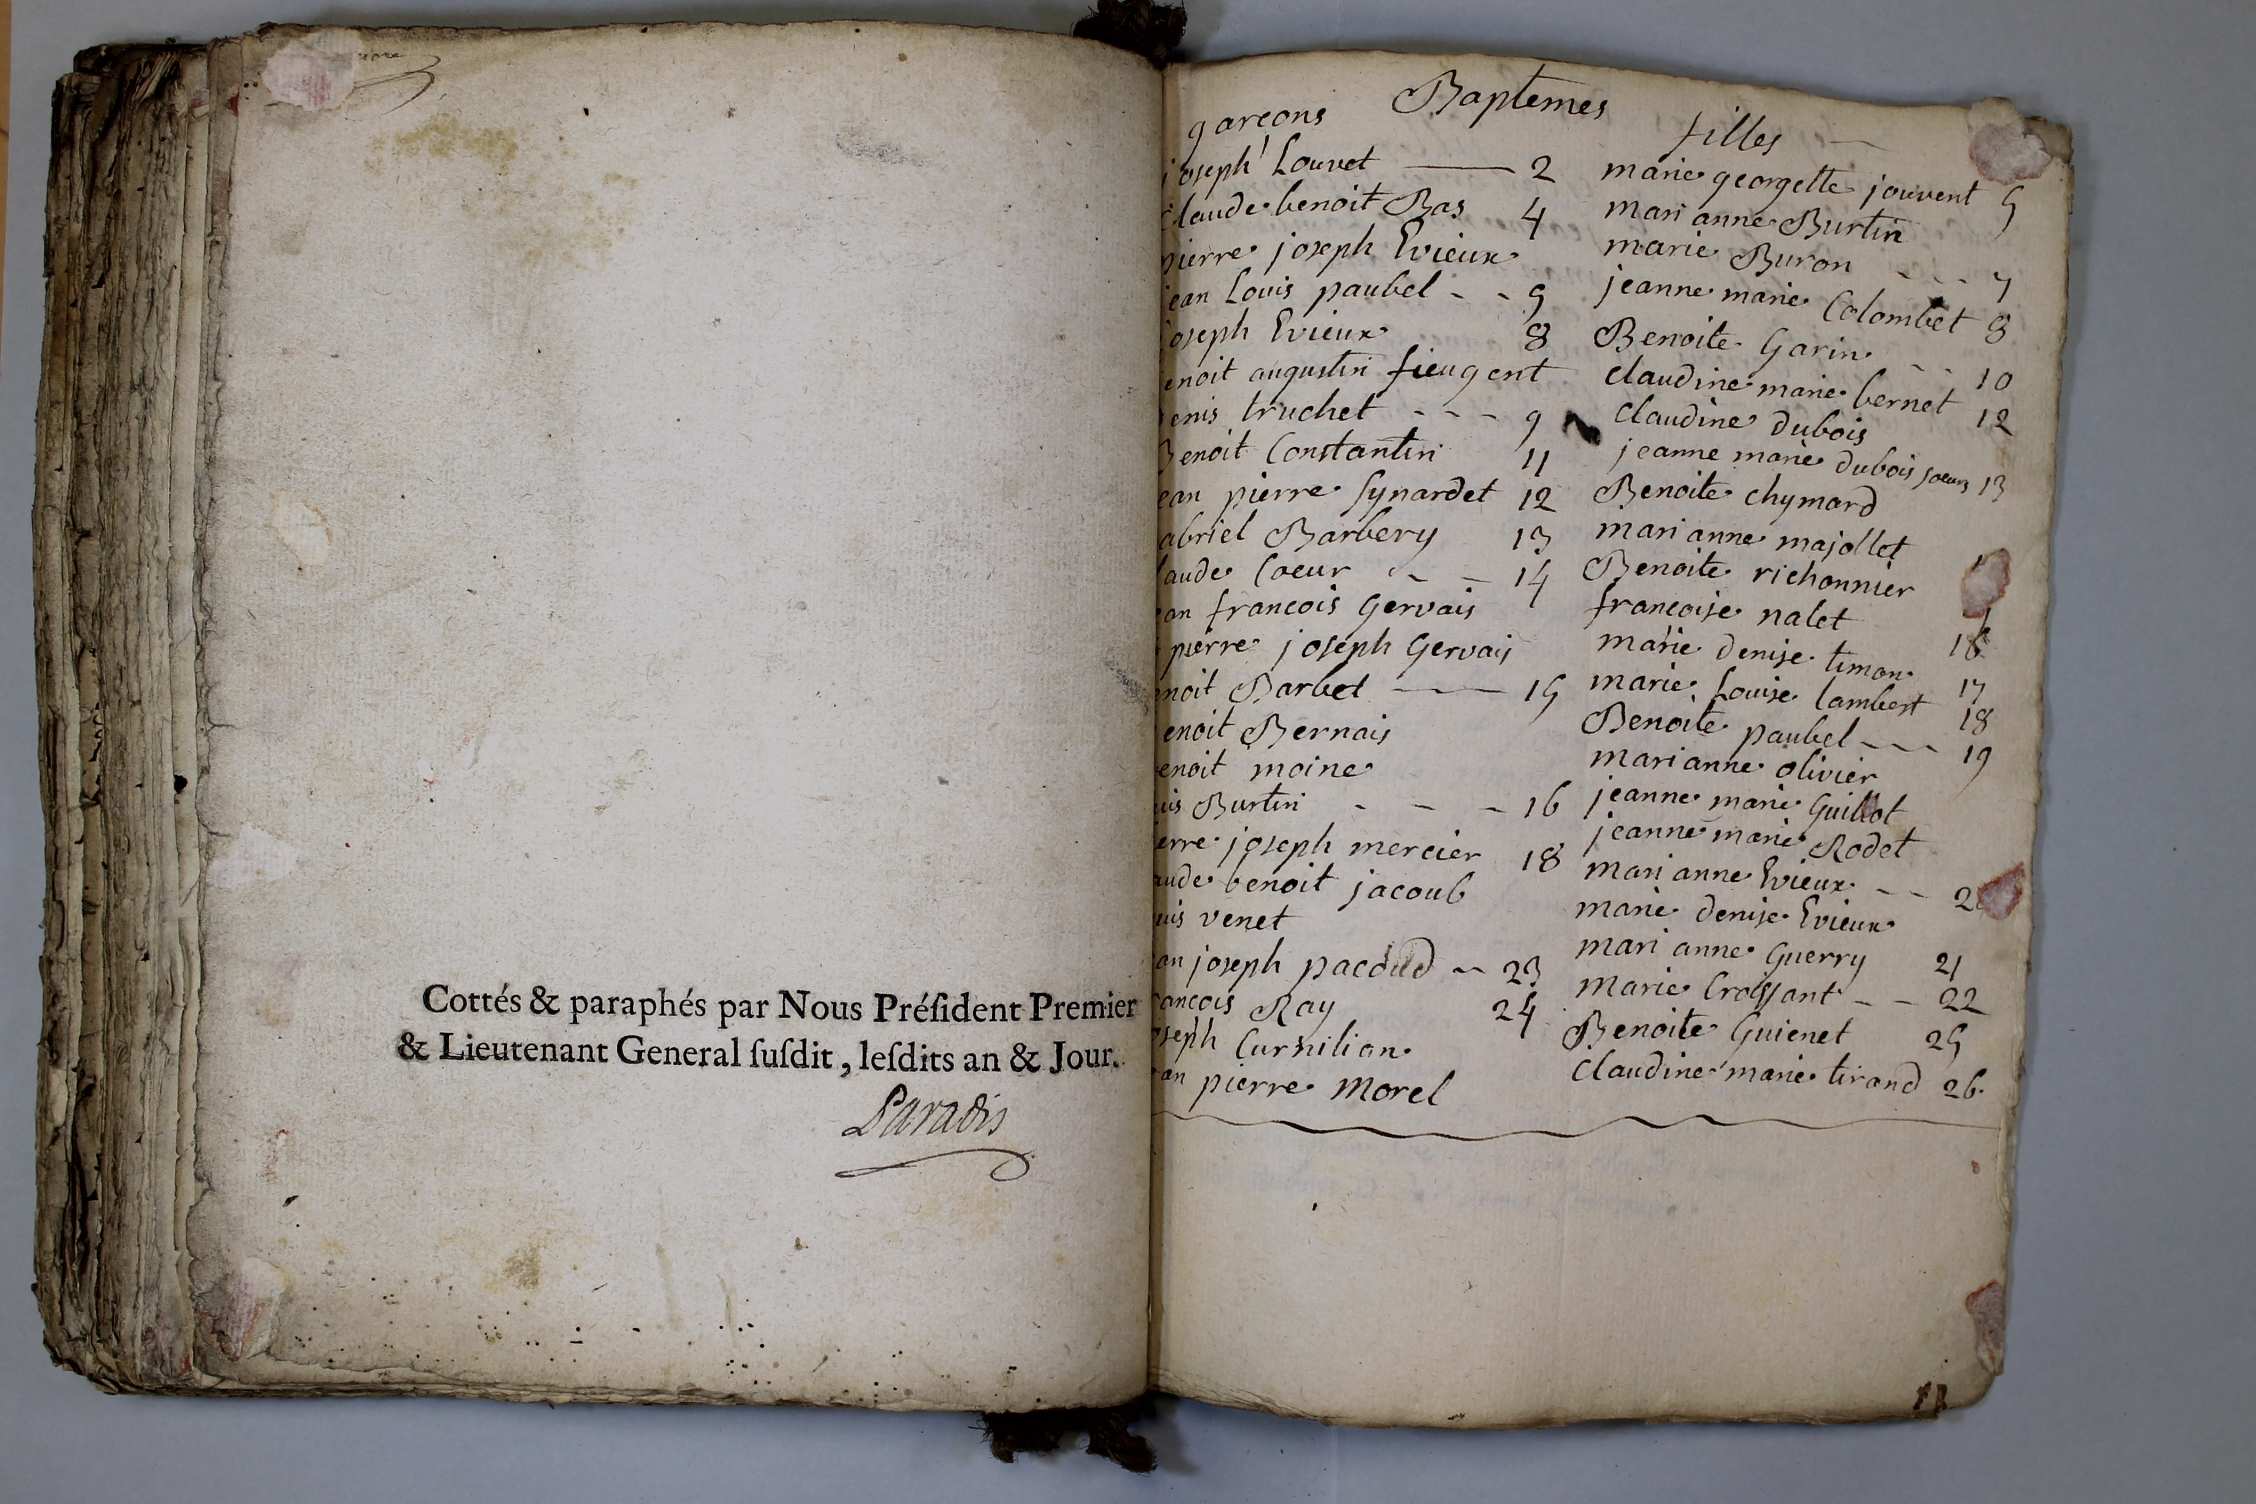 Cottés & paraphés par Nous Préſident Premier
& Lieutenant General ſuſdit, leſdits an & Jour.
Paradis
Baptemes
garcons
joseph Louvet 2
claude benoit Bas 4
pierre joseph Evieux
jean Louis paubel - - 5
joseph Evieux 8
enoit augustin fieugent
enis truchet - - - 9
Benoit Constantin 11
ean pierre Synardet 12
abriel Barbery 13
laude Coeur - - 14
an francois Gervais
pierre joseph Gervais
noit Barbet 15
enoit Bernais
enoit moine
uis Burtin - - - 16
erre joseph mercier 18
aude benoit jacoub
uis venet
an joseph pacoud - 23
ancois Ray 24
oseph Curnilion
an pierre Morel
filles
marie georgette jouvent 5
mari anne Burtin
marie Buron - - - 7
jeanne marie Colombet 8
Benoite Garin - - 10
claudine marie bernet 12
claudine dubois
jeanne marie dubois soeurs 13
Benoite chymard
mari anne majollet
Benoite richonnier
francoise nalet
marie denise timon 16
marie Louise lambert 17
Benoite paubel - - - 18
mari anne olivier 19
jeanne marie Guillot
jeanne marie Rodet
mari anne Evieux - - 2
marie denise Evieux
mari anne Guerry 21
marie Croissant - - 22
Benoite Guienet 25
claudine marie tirand 26